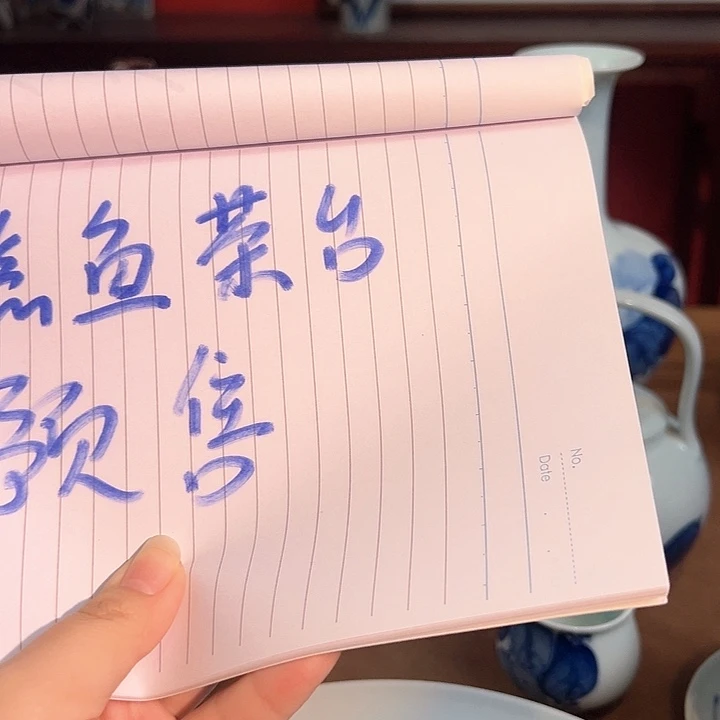 鱼茶台
预售
No.
Date